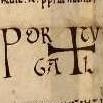 PORTV
GAL